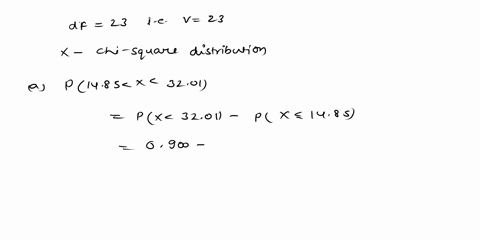 df = 23 i.e. v = 23
X - chi-square distribution
a) P(14.85 < x < 32.01)
= P(x < 32.01) - P(x ≤ 14.85)
= 0.900 -